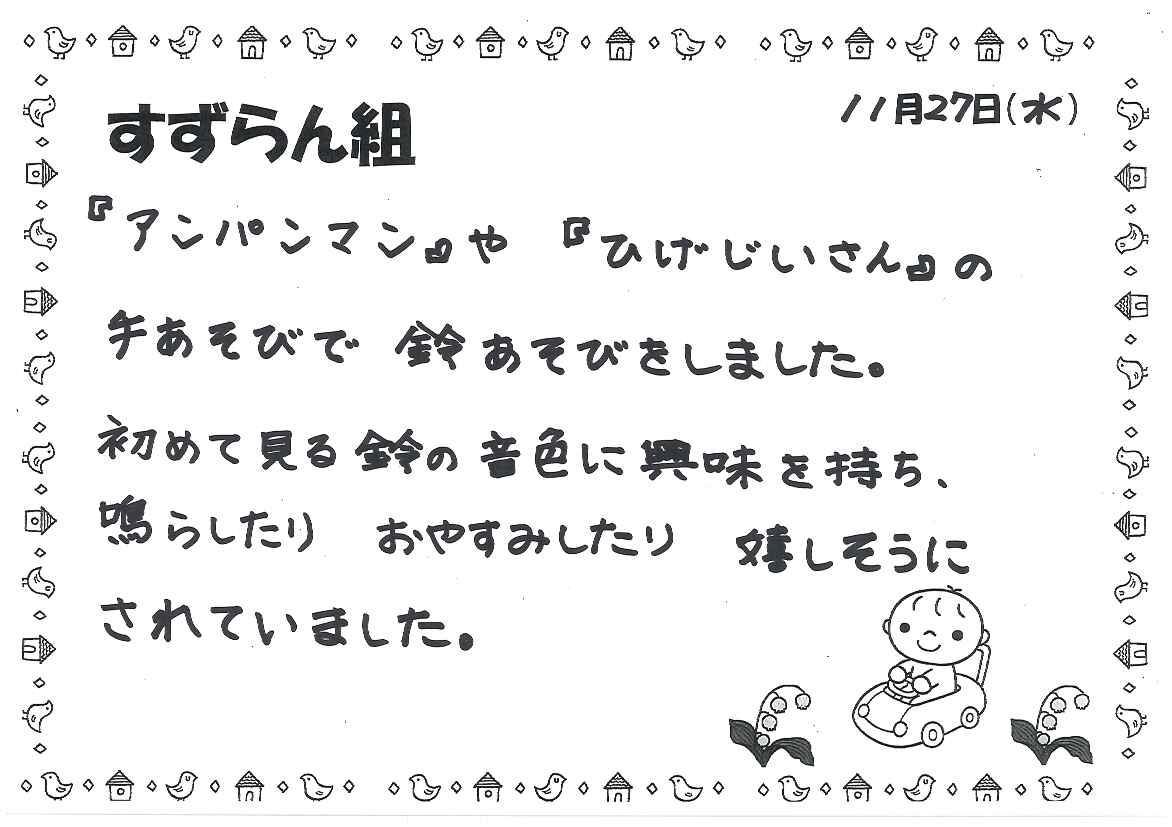 すずらん組
11月27日(水)
『アンパンマン』や『ひげじいさん』の
手あそびで 鈴あそびをしました。
初めて見る鈴の音色に興味を持ち、
鳴らしたり おやすみしたり 嬉しそうに
されていました。